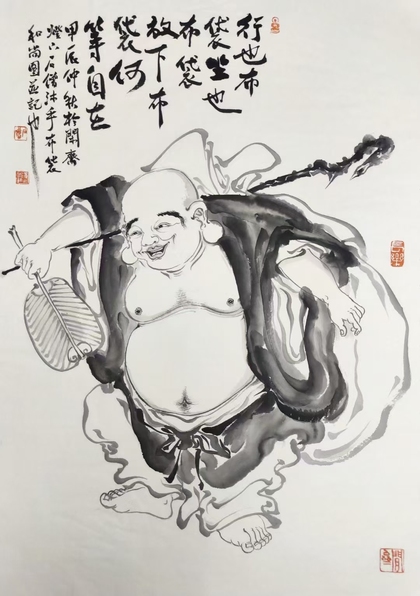 行也布
袋坐也
布袋
放下布
袋何
等自在
甲辰仲秋於閩齋
石僧沐手布袋
和尚圖並記也